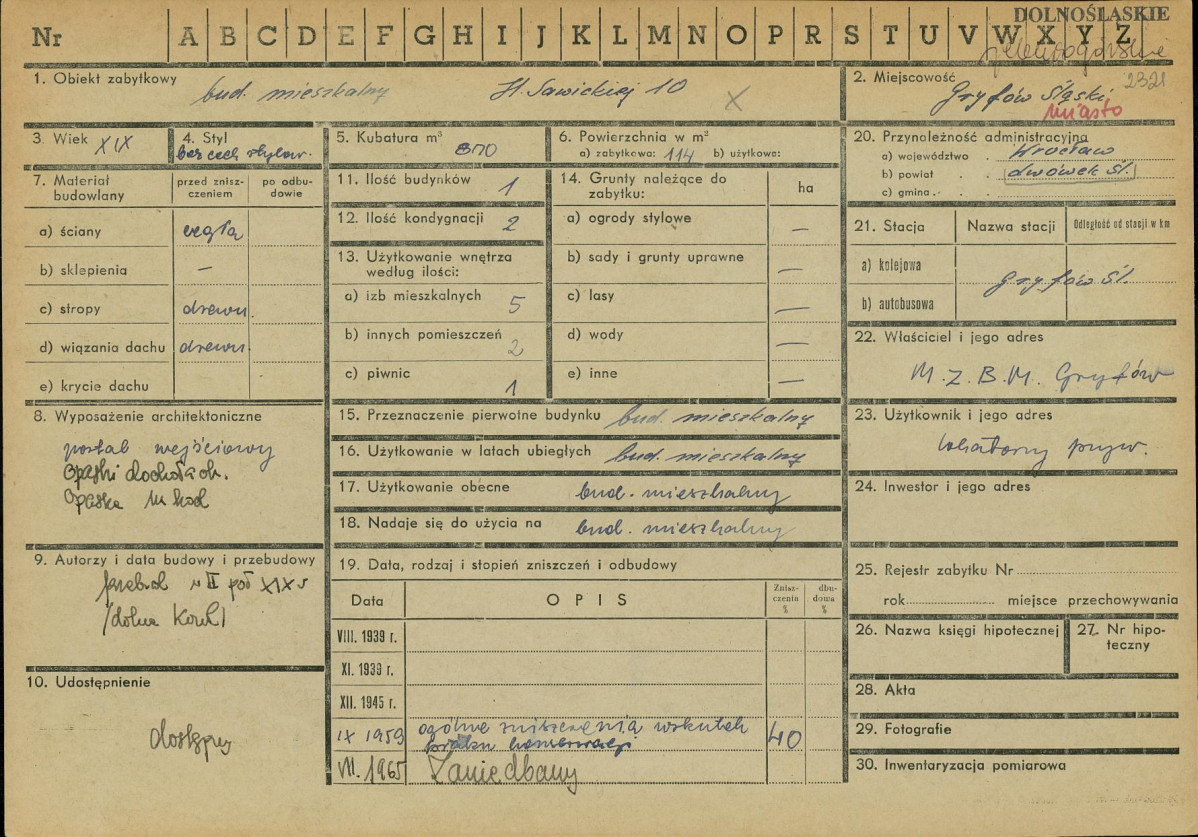 DOLNOŚLĄSKIE
Nr A B C D E F G H I J K L M N O P R S T U V W X Y Z
jeleniogórskie
1. Obiekt zabytkowy
bud. mieszkalny H. Sawickiej 10 X
2. Miejscowość 2321
Gryfów Śląski
miasto
3. Wiek XIX
4. Styl
bez cech stylow.
5. Kubatura m³
6. Powierzchnia w m²
a) zabytkowa: 114 b) użytkowa:
20. Przynależność administracyjna
a) województwo . Wrocław
b) powiat . . lwówek Śl.
c) gmina . .
7. Materiał budowlany
przed zniszczeniem
po odbudowie
a) ściany cegła
b) sklepienia —
c) stropy drewn.
d) wiązania dachu drewn.
e) krycie dachu
11. Ilość budynków 1
12. Ilość kondygnacji 2
13. Użytkowanie wnętrza według ilości:
a) izb mieszkalnych 5
b) innych pomieszczeń 2
c) piwnic 1
14. Grunty należące do zabytku: ha
a) ogrody stylowe —
b) sady i grunty uprawne —
c) lasy —
d) wody —
e) inne —
21. Stacja Nazwa stacji Odległość od stacji w km
a) kolejowa
Gryfów Śl.
b) autobusowa
22. Właściciel i jego adres
M.Z.B.M. Gryfów
8. Wyposażenie architektoniczne
portal wejściowy
opaski dookoła
opaska
15. Przeznaczenie pierwotne budynku bud. mieszkalny
16. Użytkowanie w latach ubiegłych bud. mieszkalny
17. Użytkowanie obecne bud. mieszkalny
18. Nadaje się do użycia na bud. mieszkalny
23. Użytkownik i jego adres
lokatorzy pryw.
24. Inwestor i jego adres
9. Autorzy i data budowy i przebudowy
przebud w II poł XIX w
/dolna kond/
10. Udostępnienie
dostępny
19. Data, rodzaj i stopień zniszczeń i odbudowy
Data OPIS Zniszczenia % dbudowa %
VIII. 1939 r.
XI. 1939 r.
XII. 1945 r.
IX 1959 ogólne zniszczenia wskutek 40
braku konserwacji
VII. 1965 Zaniedbany
25. Rejestr zabytku Nr
rok miejsce przechowywania
26. Nazwa księgi hipotecznej
27. Nr hipoteczny
28. Akta
29. Fotografie
30. Inwentaryzacja pomiarowa